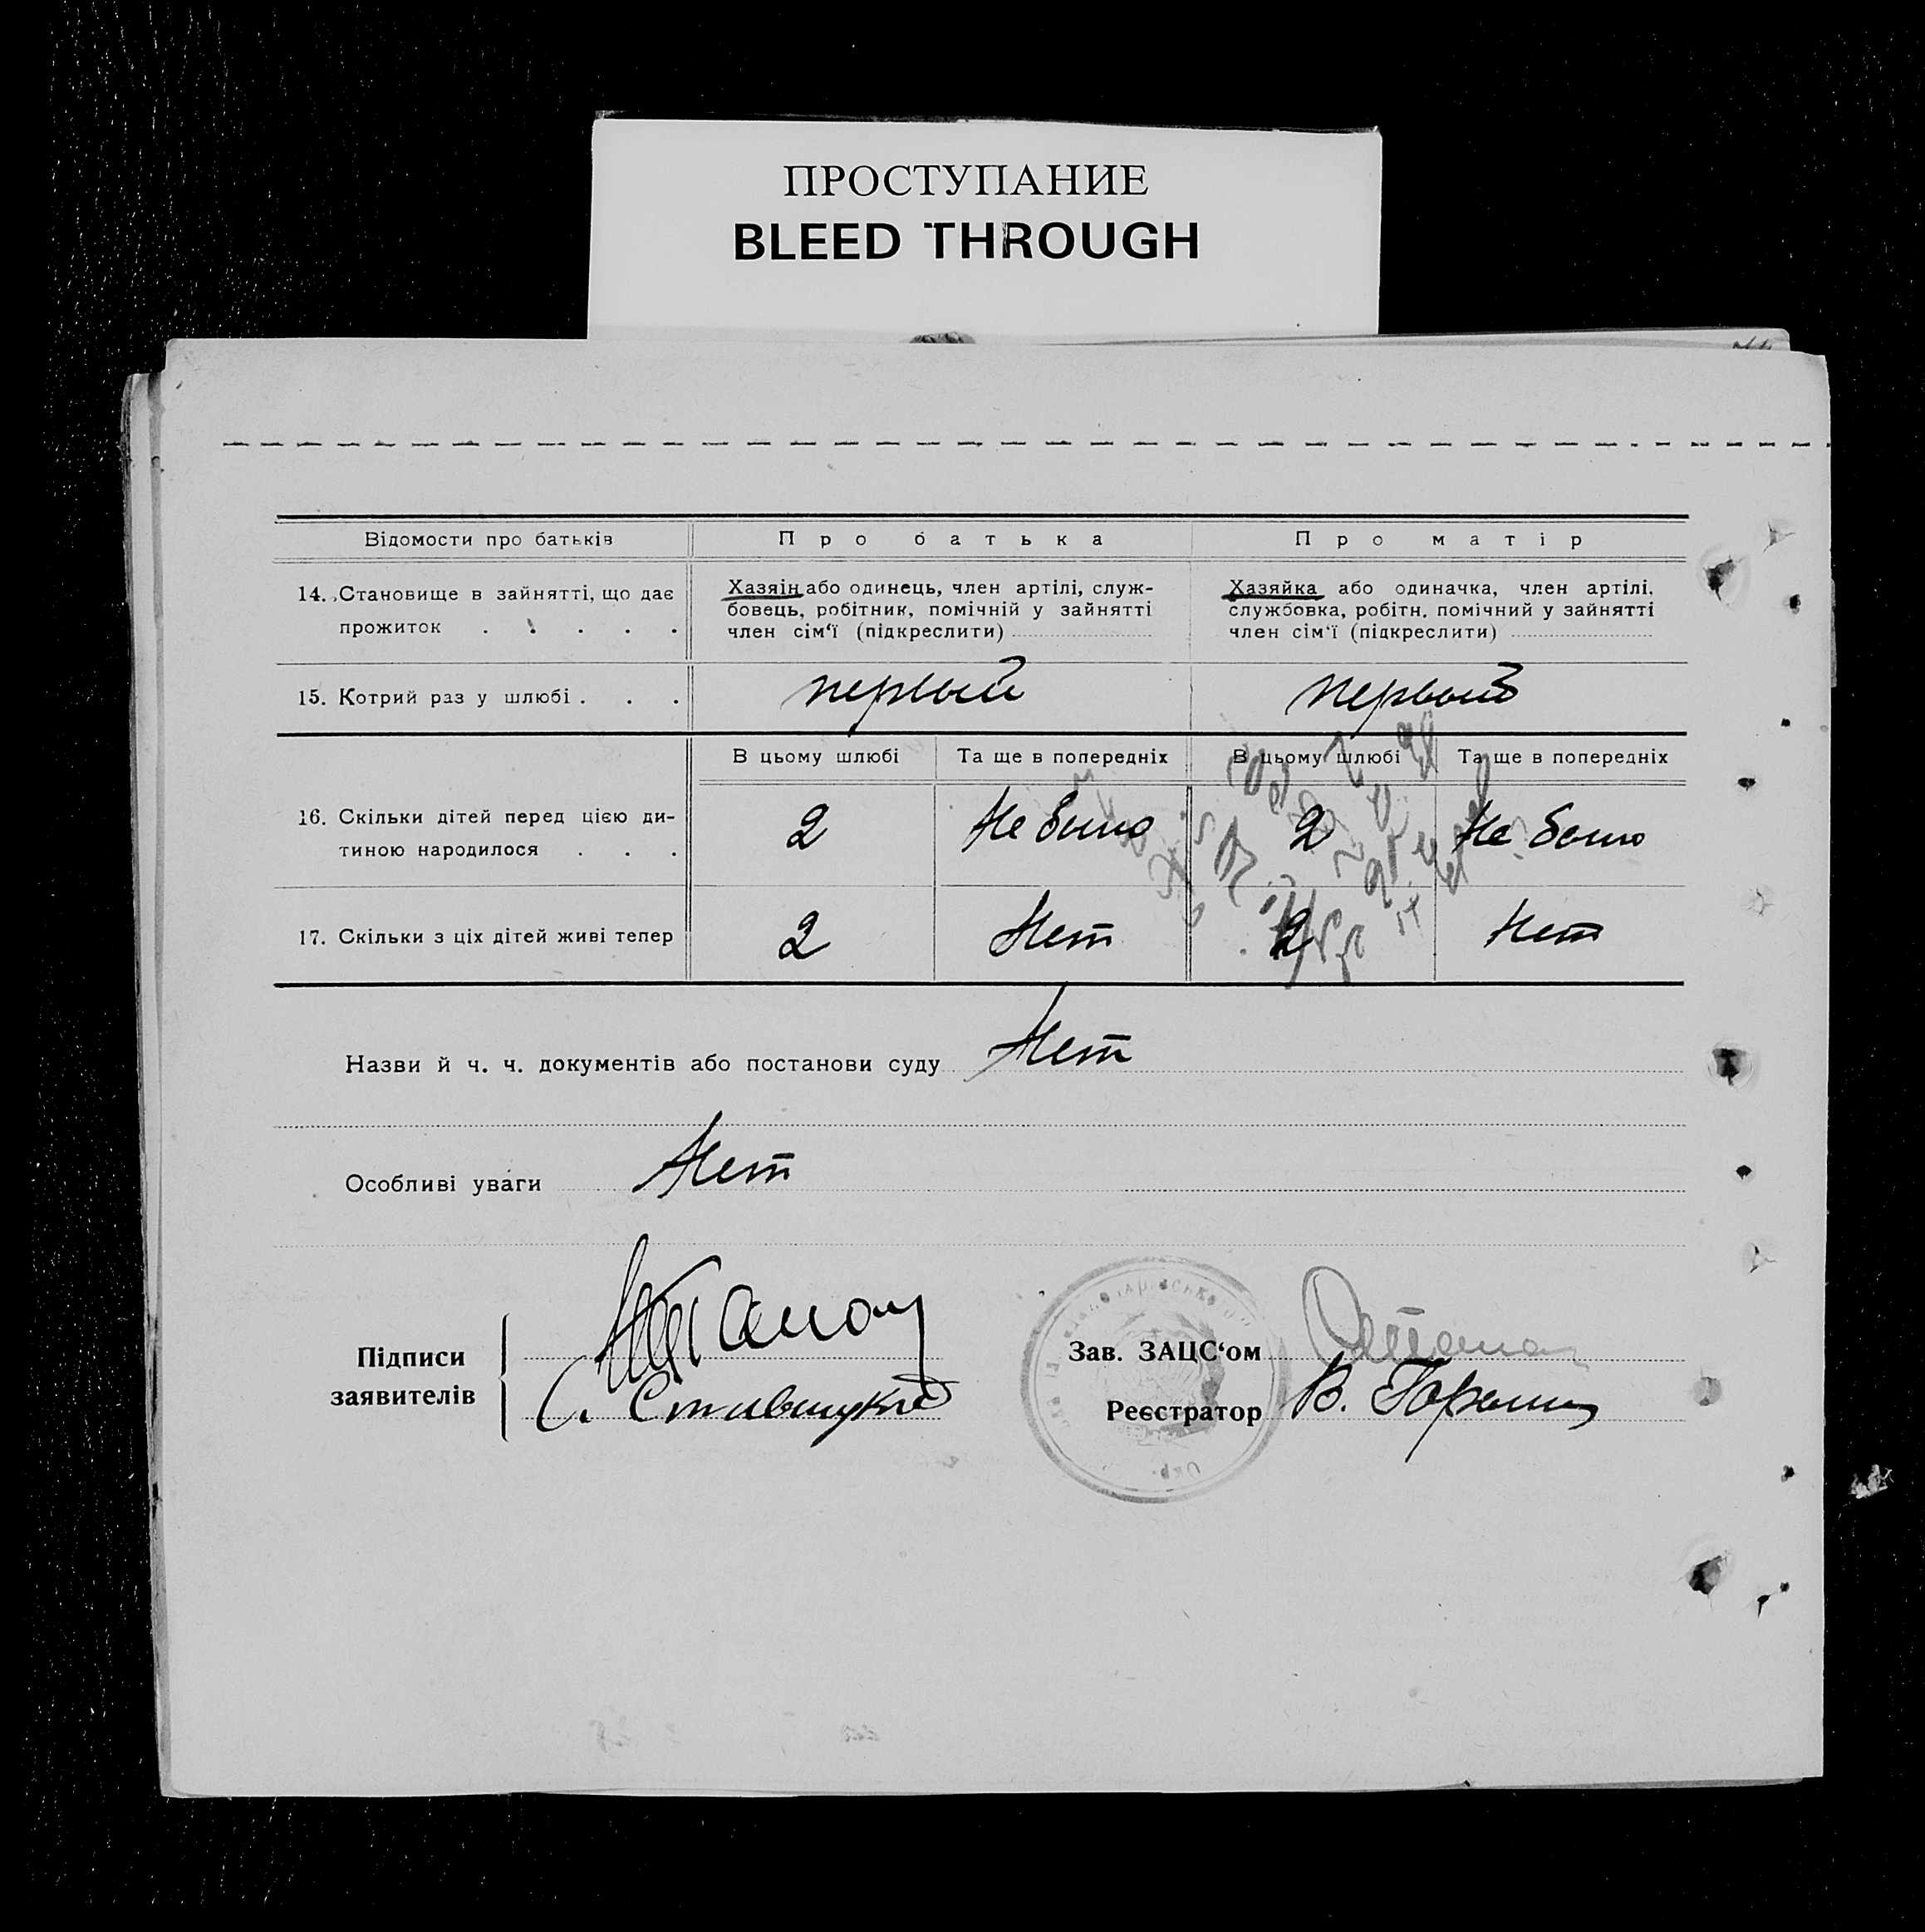 ПРОСТУПАНИЕ
BLEED THROUGH
Відомости про батьків
Про батька
Про матір
14. Становище в зайнятті, що дає
прожиток . . . . .
Хазяін або одинець, член артілі, служ-
бовець, робітник, помічній у зайнятті
член сім‘ї (підкреслити)
Хазяйка або одиначка, член артілі,
службовка, робітн. помічний у зайнятті
член сім‘ї (підкреслити)
15. Котрий раз у шлюбі . . .
первый
первый
В цьому шлюбі
Та ще в попередніх
В цьому шлюбі
Та ще в попередніх
16. Скільки дітей перед цією ди-
тиною народилося . . .
2
Не было
2
Не было
17. Скільки з ціх дітей живі тепер
2
Нет
2
Нет
Назви й ч. ч. документів або постанови суду Нет
Особливі уваги Нет
Підписи
заявителів
С.
Зав. ЗАЦС‘ом
Реєстратор В.